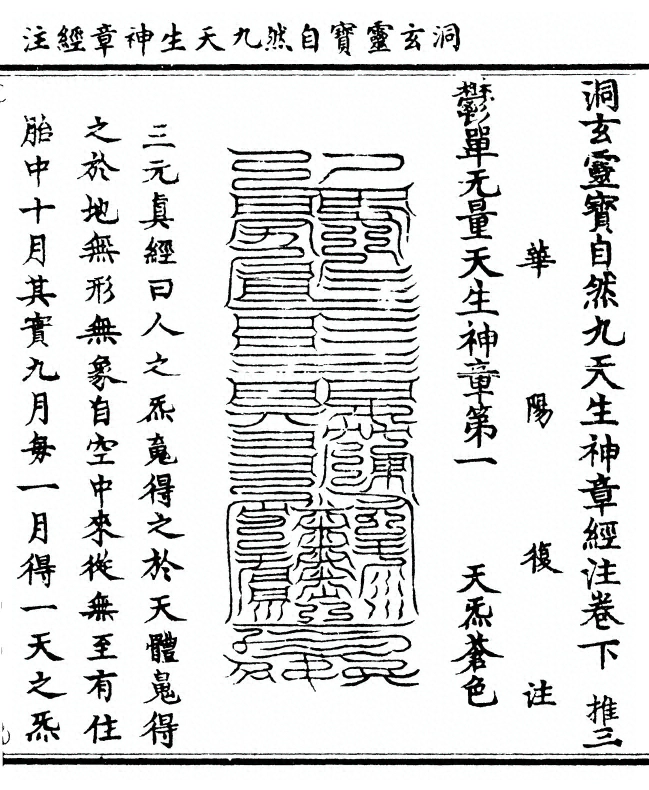 洞玄靈寳自然九天生神章經注
洞玄靈寳自然九天生神章經注卷下 推三
華陽復注
鬱單无量天生神章第一 天炁蒼色
三元真經曰人之炁竟得之於天體鬼得
之於地無形無象自空中來從無至有住
胎中十月其實九月每一月得一天之炁